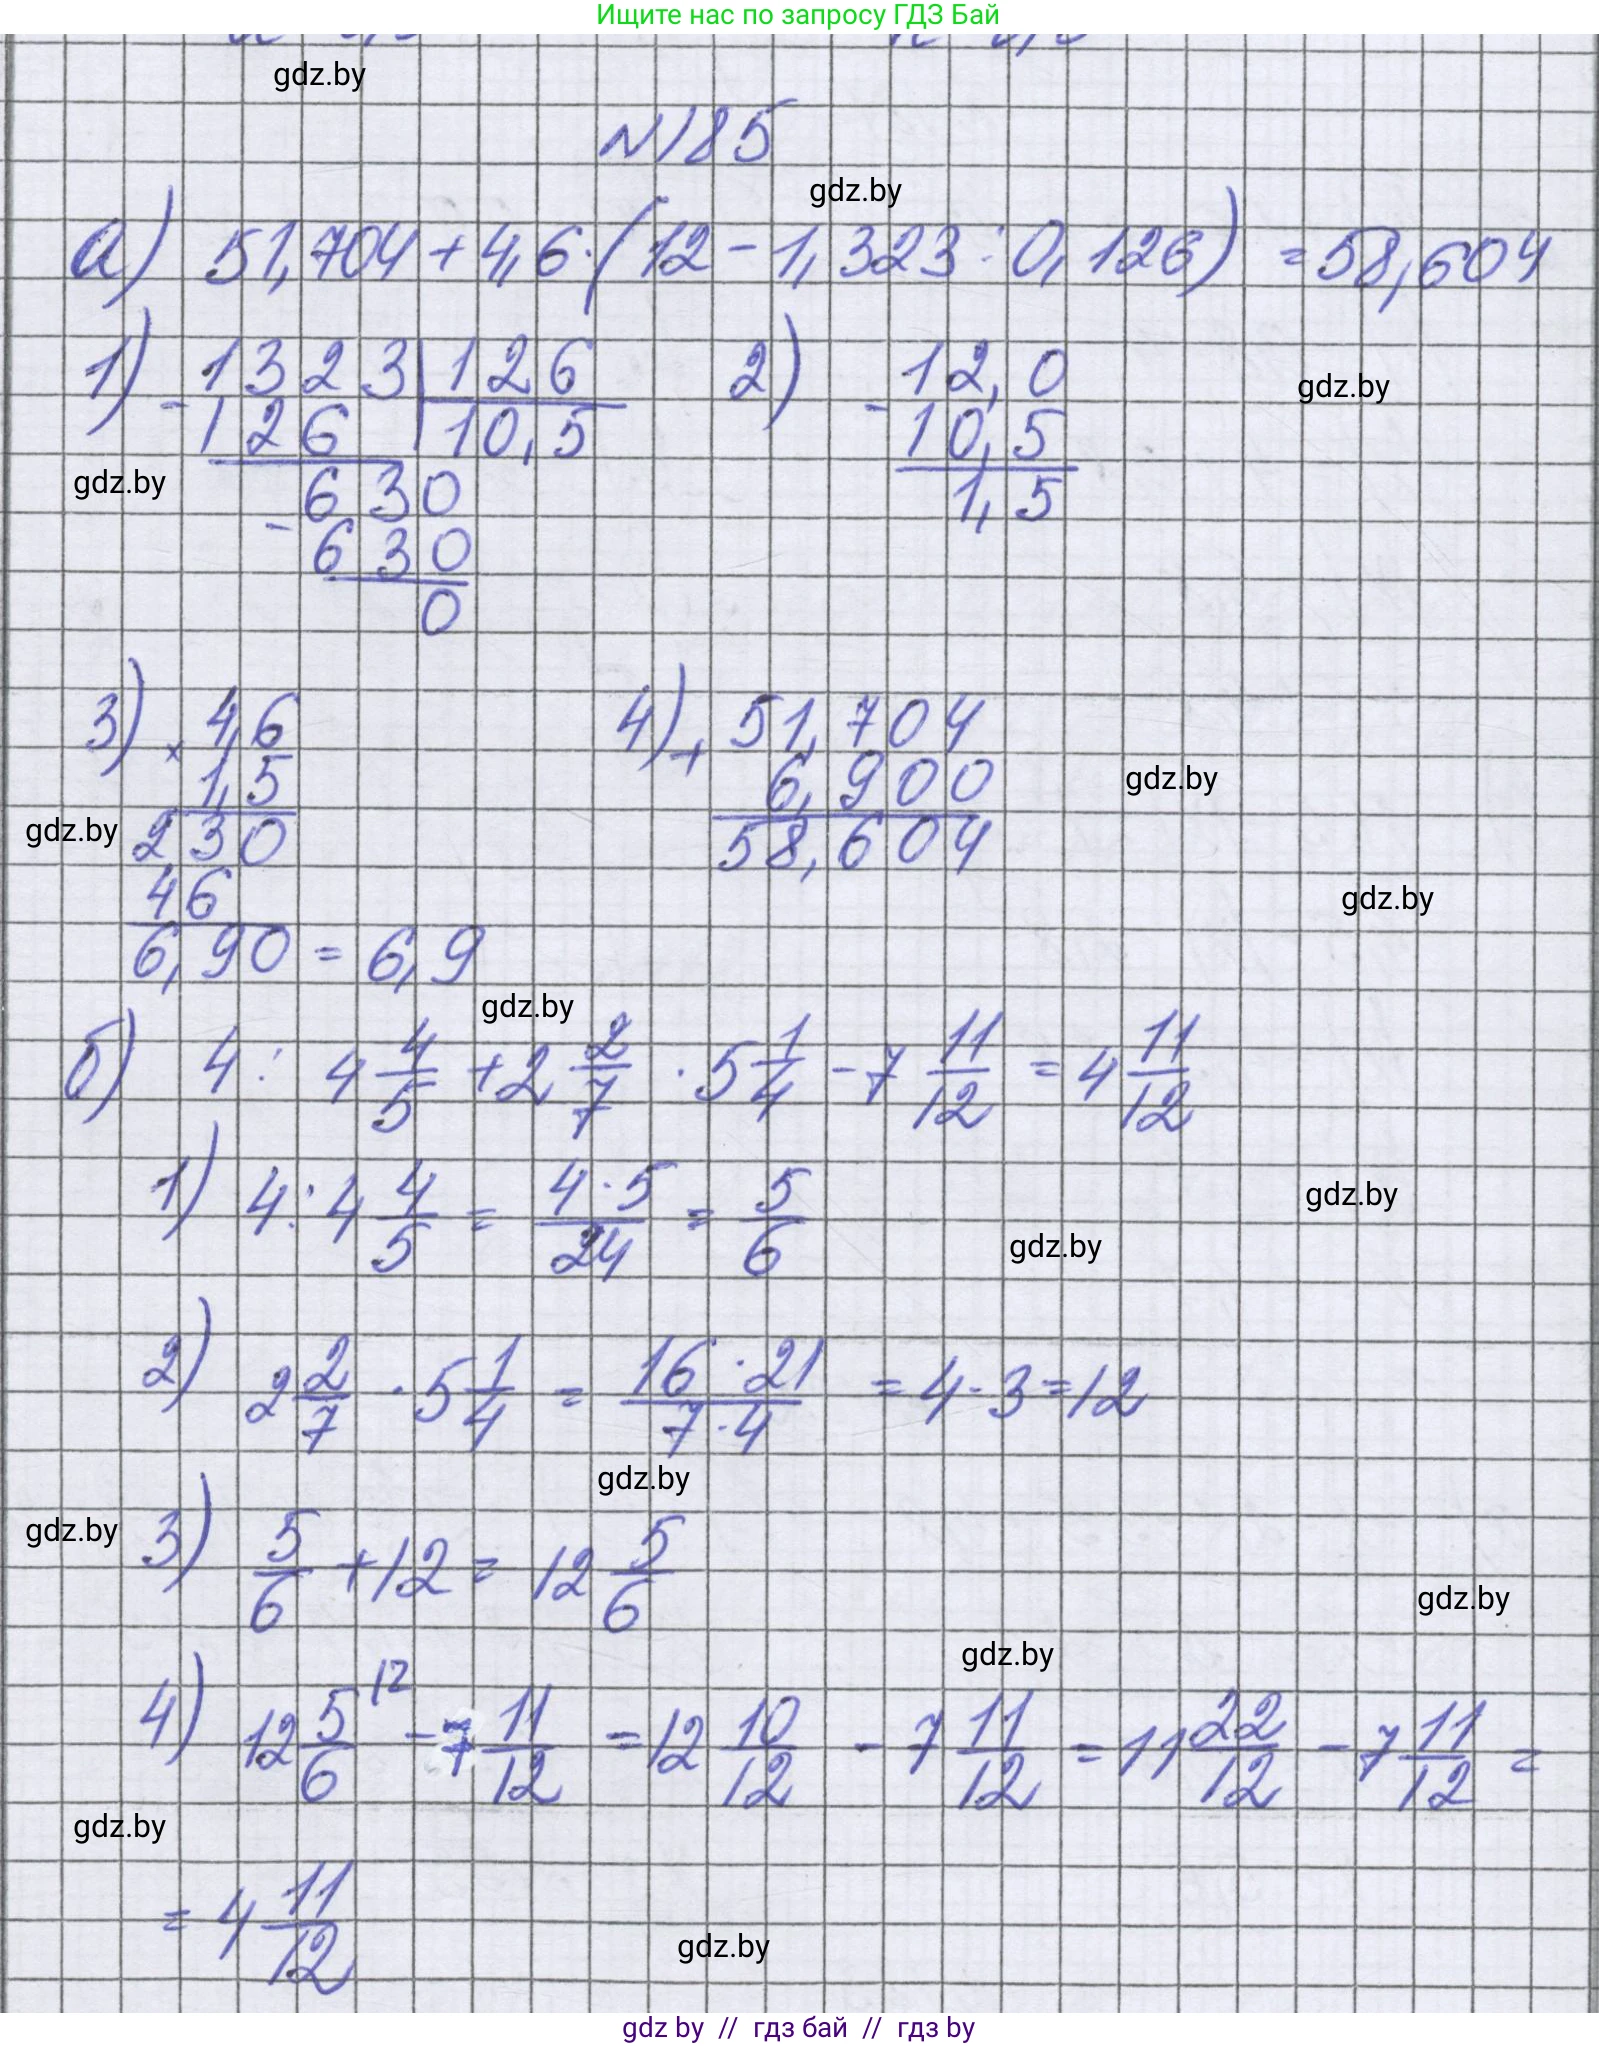 Ищите нас по запросу ГДЗ Бай
gdz.by
№185
gdz.by
а) 51,704 + 4,6 · (12 - 1,323 : 0,126) = 58,604
1) - 1323 | 126 2) - 12,0
gdz.by
126 | 10,5 10,5
gdz.by
- 630 1,5
630
0
3) × 4,6 4) + 51,704
1,5 6,900
gdz.by
gdz.by
230 58,604
46
gdz.by
6,90 = 6,9
gdz.by
б) 4 : 4 4/5 + 2 2/7 · 5 1/4 - 7 11/12 = 4 11/12
1) 4 : 4 4/5 = 4·5/24 = 5/6
gdz.by
gdz.by
2) 2 2/7 · 5 1/4 = 16·21/7·4 = 4·3=12
gdz.by
gdz.by
3) 5/6 + 12 = 12 5/6
gdz.by
gdz.by
4) 12 5/6 ^12 - 7 11/12 = 12 10/12 - 7 11/12 = 11 22/12 - 7 11/12 =
gdz.by
= 4 11/12
gdz.by
gdz by // гдз бай // гдз by